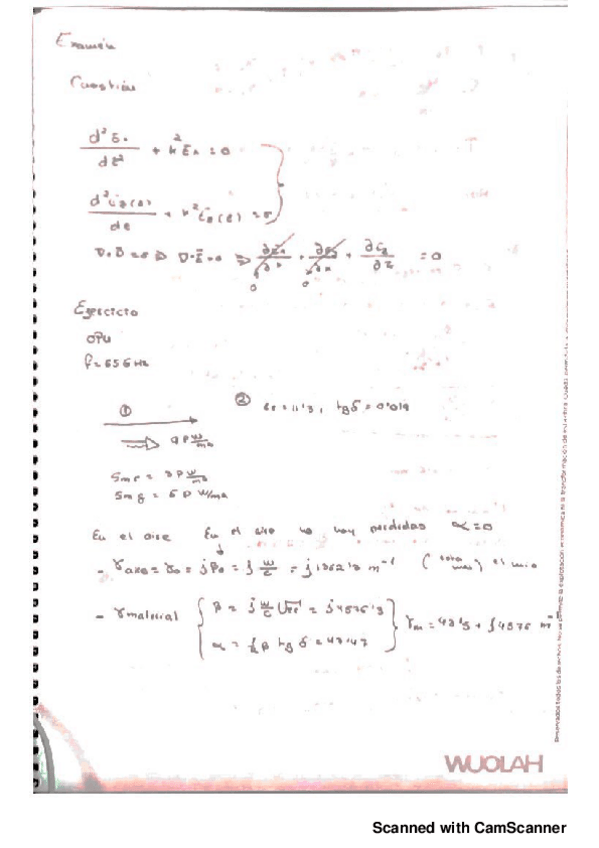 Examen
Cuestión
d² Ex / dz² + k² Ex = 0
d² Ez(z) / dz + k² Ez(z) = 0
∇·D = 0 ⇒ ∇·E = 0 ⇒ ∂Ex/∂x + ∂Ey/∂x + ∂Ez/∂z = 0
0 0
Ejercicio
OPU
f = 65 GHz
① ② εr = 11'3, tgδ = 0'019
9 P W/m2
Smr = 3P W/m2
Smg = 6 P W/m2
En el aire En el aire no hay perdidas α = 0
- γaire = γ0 = jβ0 = j w/c = j 1362'3 m⁻¹ ( ) el mio
- γmaterial { β = j w/c √εr = j 4576'3
α = ½ β tgδ = 43'47 } γm = 43'5 + j 4576 m⁻¹
WUOLAH
Reservados todos los derechos. No se permite la explotación económica ni la transformación de esta obra. Queda permitida la
Scanned with CamScanner